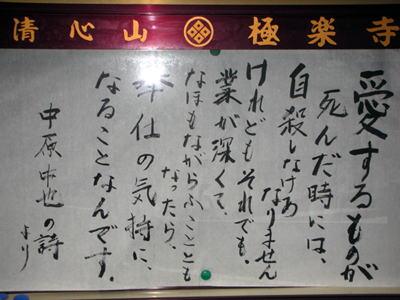 清心山 極楽寺
愛するものが
死んだ時には、
自殺しなけあ
なりません
けれどもそれでも、
業が深くて、
なほもながらふこととも
なったら、
奉仕の気持に、
なることなんです。
中原中也の詩
より